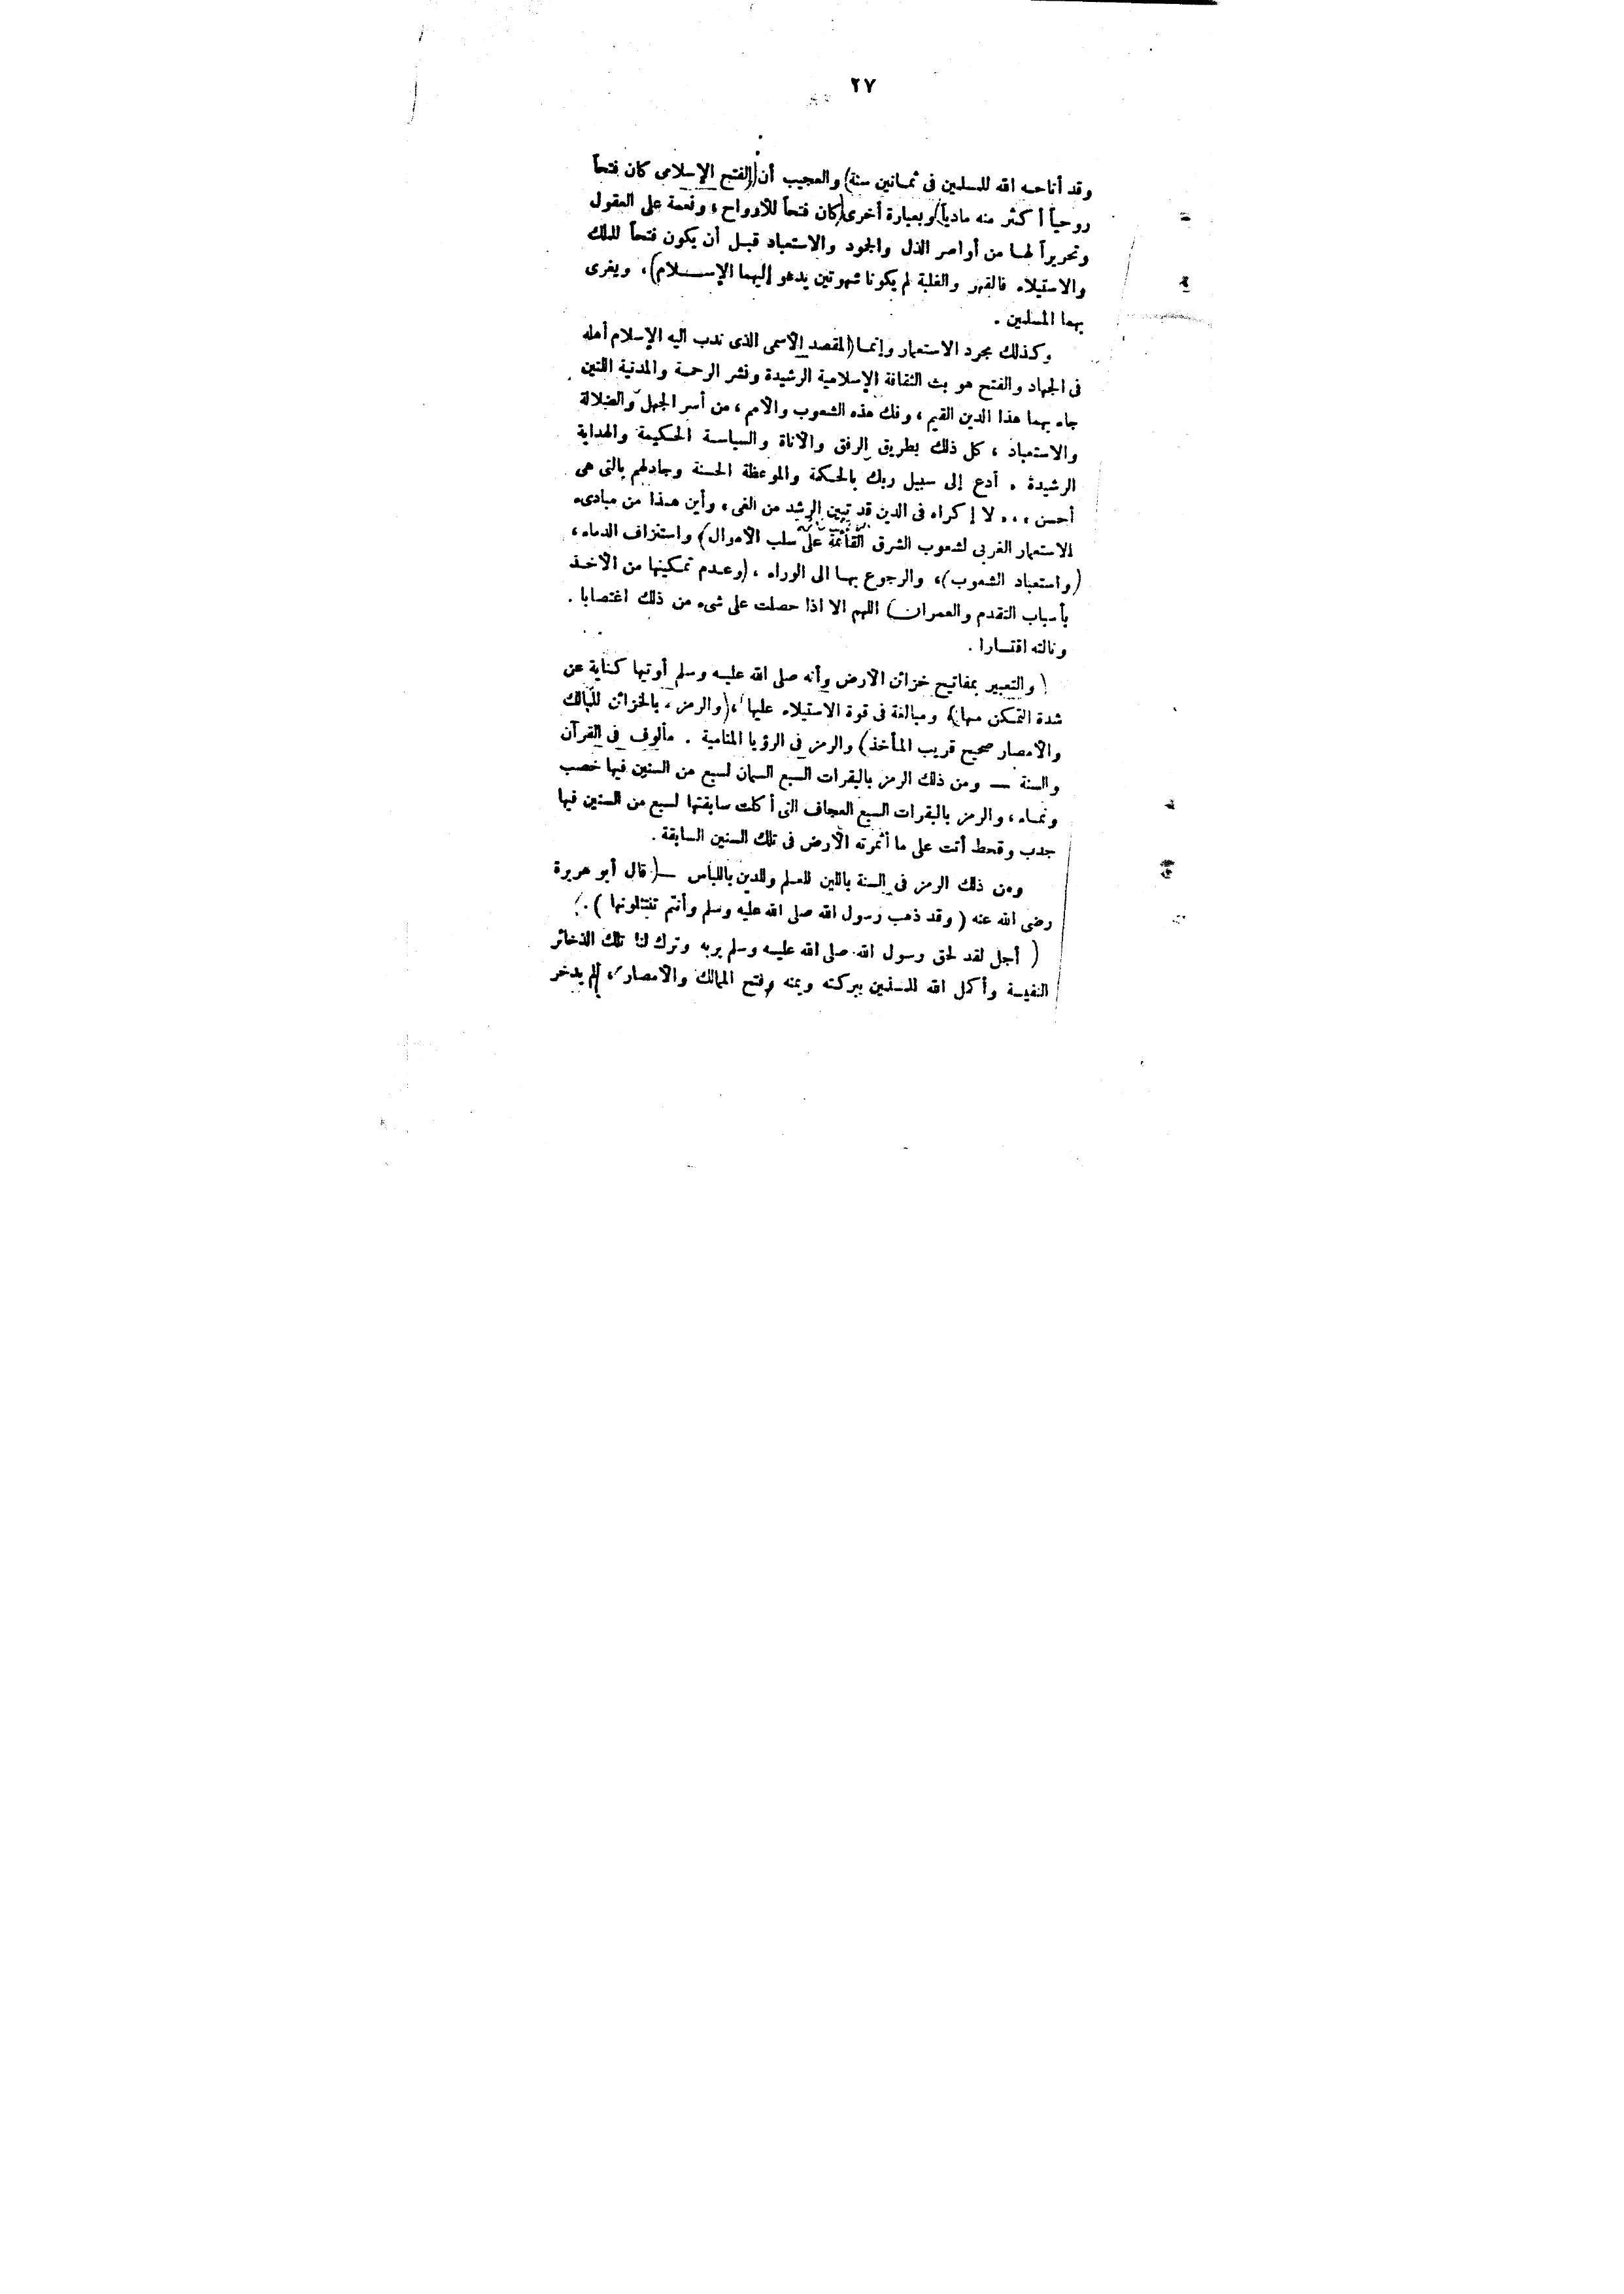 ٢٧
وقد أتاحه الله للمسلمين فى ثمانين سنة) والعجيب أن (الفتح الإسلامى كان فتحاً
روحياً أكثر منه مادياً) وبعبارة أخرى (كان فتحاً للأرواح ، ونعمة على العقول
وتحريراً لها من أواصر الذل والجود والاستعباد قبل أن يكون فتحاً للملك
والاستيلاء فالقهر والغلبة لم يكونا شهوتين يدعو إليهما الإســـلام) ، ويغرى
بهما المسلمين .
وكذلك مجرد الاستعمار وإنما (المقصد الأسمى الذى ندب اليه الإسلام أهله
فى الجهاد والفتح هو بث الثقافة الإسلامية الرشيدة ونشر الرحمة والمدنية اللتين
جاء بهما هذا الدين القيم ، وفك هذه الشعوب والأمم ، من أسر الجهل والضلالة
والاستعباد ، كل ذلك بطريق الرفق والأناة والسياسة الحكيمة والهداية
الرشيدة . أدع إلى سبيل ربك بالحكمة والموعظة الحسنة وجادلهم بالتى هى
أحسن ... لا إكراه فى الدين قد تبين الرشد من الغى ، وأين هذا من مبادىء
الاستعمار الغربى لشعوب الشرق القائمة على سلب الأموال) واستنزاف الدماء ،
(واستعباد الشعوب) ، والرجوع بها الى الوراء ، (وعدم تمكينها من الأخذ
بأسباب التقدم والعمران) اللهم الا اذا حصلت على شىء من ذلك اغتصابا .
ونالته اقتسارا .
(والتعبير بمفاتيح خزائن الأرض وأنه صلى الله عليه وسلم أوتيها كناية عن
شدة التمكن منها) ومبالغة فى قوة الاستيلاء عليها ، (والرمز بالخزائن للمالك
والأمصار صحيح قريب المأخذ) والرمز فى الرؤيا المنامية . مألوف فى القرآن
والسنة — ومن ذلك الرمز بالبقرات السبع السمان لسبع من السنين فيها خصب
ونماء ، والرمز بالبقرات السبع العجاف التى أكلت سابقتها لسبع من السنين فيها
جدب وقحط أتت على ما أثمرته الأرض فى تلك السنين السابقة .
ومن ذلك الرمز فى السنة باللبن للعلم وللدين باللباس — (قال أبو هريرة
رضى الله عنه ( وقد ذهب رسول الله صلى الله عليه وسلم وأنتم تنتثلونها ) .
( أجل لقد لحق رسول الله صلى الله عليه وسلم بربه وترك لنا تلك الذخائر
النفيسة وأكمل الله للمسلمين ببركته ويمنه وفتح الممالك والأمصار ، لم يدخر